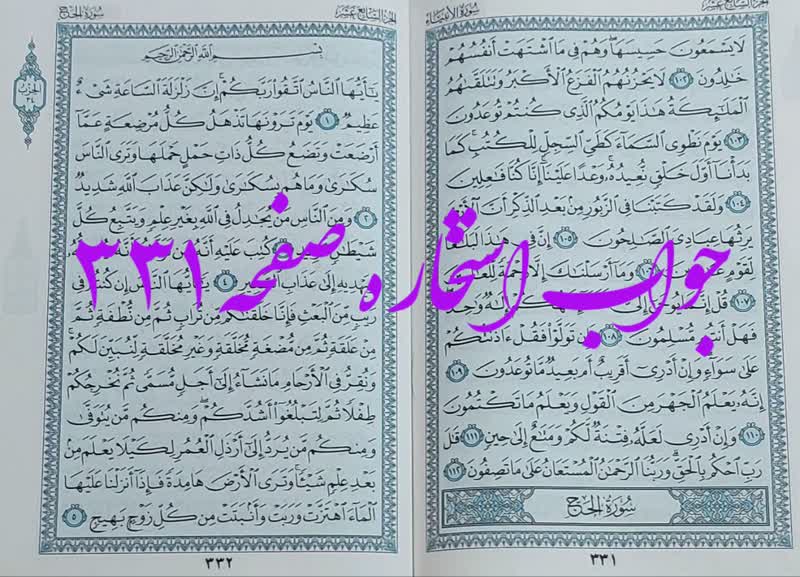 الجزء السابع عشر
سورة الأنبياء
لَا يَسْمَعُونَ حَسِيسَهَا وَهُمْ فِي مَا اشْتَهَتْ أَنفُسُهُمْ
خَالِدُونَ ١٠٢ لَا يَحْزُنُهُمُ الْفَزَعُ الْأَكْبَرُ وَتَتَلَقَّاهُمُ
الْمَلَائِكَةُ هَذَا يَوْمُكُمُ الَّذِي كُنتُمْ تُوعَدُونَ
١٠٣ يَوْمَ نَطْوِي السَّمَاءَ كَطَيِّ السِّجِلِّ لِلْكُتُبِ كَمَا
بَدَأْنَا أَوَّلَ خَلْقٍ نُّعِيدُهُ وَعْدًا عَلَيْنَا إِنَّا كُنَّا فَاعِلِينَ
١٠٤ وَلَقَدْ كَتَبْنَا فِي الزَّبُورِ مِن بَعْدِ الذِّكْرِ أَنَّ الْأَرْضَ
يَرِثُهَا عِبَادِيَ الصَّالِحُونَ ١٠٥ إِنَّ فِي هَذَا
لِّقَوْمٍ ١٠٦ وَمَا أَرْسَلْنَاكَ إِلَّا رَحْمَةً
١٠٧ قُلْ إِلَهٌ وَاحِدٌ
فَهَلْ أَنتُم مُّسْلِمُونَ ١٠٨ تَوَلَّوْا فَقُلْ آذَنتُكُمْ
عَلَى سَوَاءٍ وَإِنْ أَدْرِي أَقَرِيبٌ أَم بَعِيدٌ مَّا تُوعَدُونَ ١٠٩
إِنَّهُ يَعْلَمُ الْجَهْرَ مِنَ الْقَوْلِ وَيَعْلَمُ مَا تَكْتُمُونَ
١١٠ وَإِنْ أَدْرِي لَعَلَّهُ فِتْنَةٌ لَّكُمْ وَمَتَاعٌ إِلَى حِينٍ ١١١ قَالَ
رَبِّ احْكُم بِالْحَقِّ وَرَبُّنَا الرَّحْمَنُ الْمُسْتَعَانُ عَلَى مَا تَصِفُونَ ١١٢
سورة الحج
٣٣١
جواب استخاره صفحه ٣٣١
الجزء السابع عشر
سورة الحج
الحزب ٣٤
بِسْمِ اللَّهِ الرَّحْمَنِ الرَّحِيمِ
يَا أَيُّهَا النَّاسُ اتَّقُوا رَبَّكُمْ إِنَّ زَلْزَلَةَ السَّاعَةِ شَيْءٌ
عَظِيمٌ ١ يَوْمَ تَرَوْنَهَا تَذْهَلُ كُلُّ مُرْضِعَةٍ عَمَّا
أَرْضَعَتْ وَتَضَعُ كُلُّ ذَاتِ حَمْلٍ حَمْلَهَا وَتَرَى النَّاسَ
سُكَارَى وَمَا هُم بِسُكَارَى وَلَكِنَّ عَذَابَ اللَّهِ شَدِيدٌ
٢ وَمِنَ النَّاسِ مَن يُجَادِلُ فِي اللَّهِ بِغَيْرِ عِلْمٍ وَيَتَّبِعُ كُلَّ
شَيْطَانٍ كُتِبَ عَلَيْهِ أَنَّهُ
وَيَهْدِيهِ إِلَى عَذَابِ السَّعِيرِ ٤ يَا أَيُّهَا النَّاسُ إِن كُنتُمْ فِي
رَيْبٍ مِّنَ الْبَعْثِ فَإِنَّا خَلَقْنَاكُم مِّن تُرَابٍ ثُمَّ مِن نُّطْفَةٍ ثُمَّ
مِنْ عَلَقَةٍ ثُمَّ مِن مُّضْغَةٍ مُّخَلَّقَةٍ وَغَيْرِ مُخَلَّقَةٍ لِّنُبَيِّنَ لَكُمْ
وَنُقِرُّ فِي الْأَرْحَامِ مَا نَشَاءُ إِلَى أَجَلٍ مُّسَمًّى ثُمَّ نُخْرِجُكُمْ
طِفْلًا ثُمَّ لِتَبْلُغُوا أَشُدَّكُمْ وَمِنكُم مَّن يُتَوَفَّى
وَمِنكُم مَّن يُرَدُّ إِلَى أَرْذَلِ الْعُمُرِ لِكَيْلَا يَعْلَمَ مِن
بَعْدِ عِلْمٍ شَيْئًا وَتَرَى الْأَرْضَ هَامِدَةً فَإِذَا أَنزَلْنَا عَلَيْهَا
الْمَاءَ اهْتَزَّتْ وَرَبَتْ وَأَنبَتَتْ مِن كُلِّ زَوْجٍ بَهِيجٍ ٥
٣٣٢